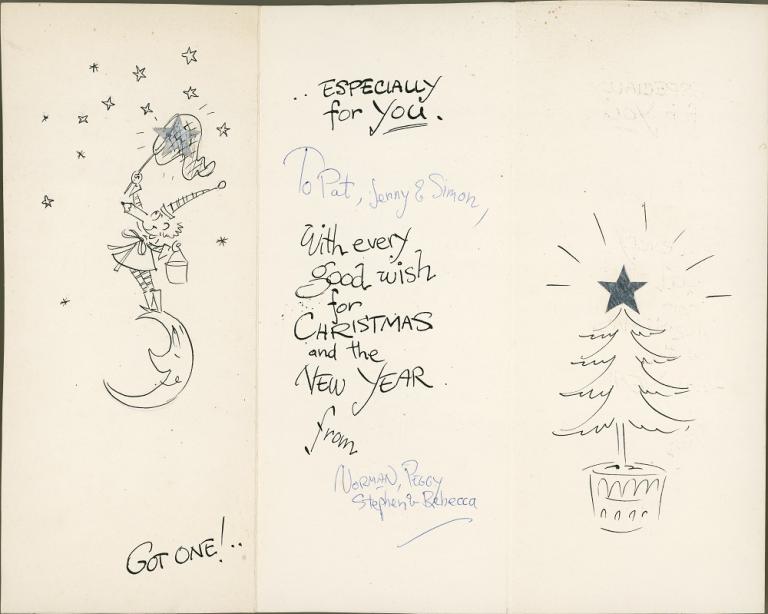 GOT ONE!..
.. ESPECIALLY
for YOU.
To Pat, Jenny & Simon,
With every
good wish
for
CHRISTMAS
and the
NEW YEAR
from
NORMAN, PEGGY
Stephen & Rebecca